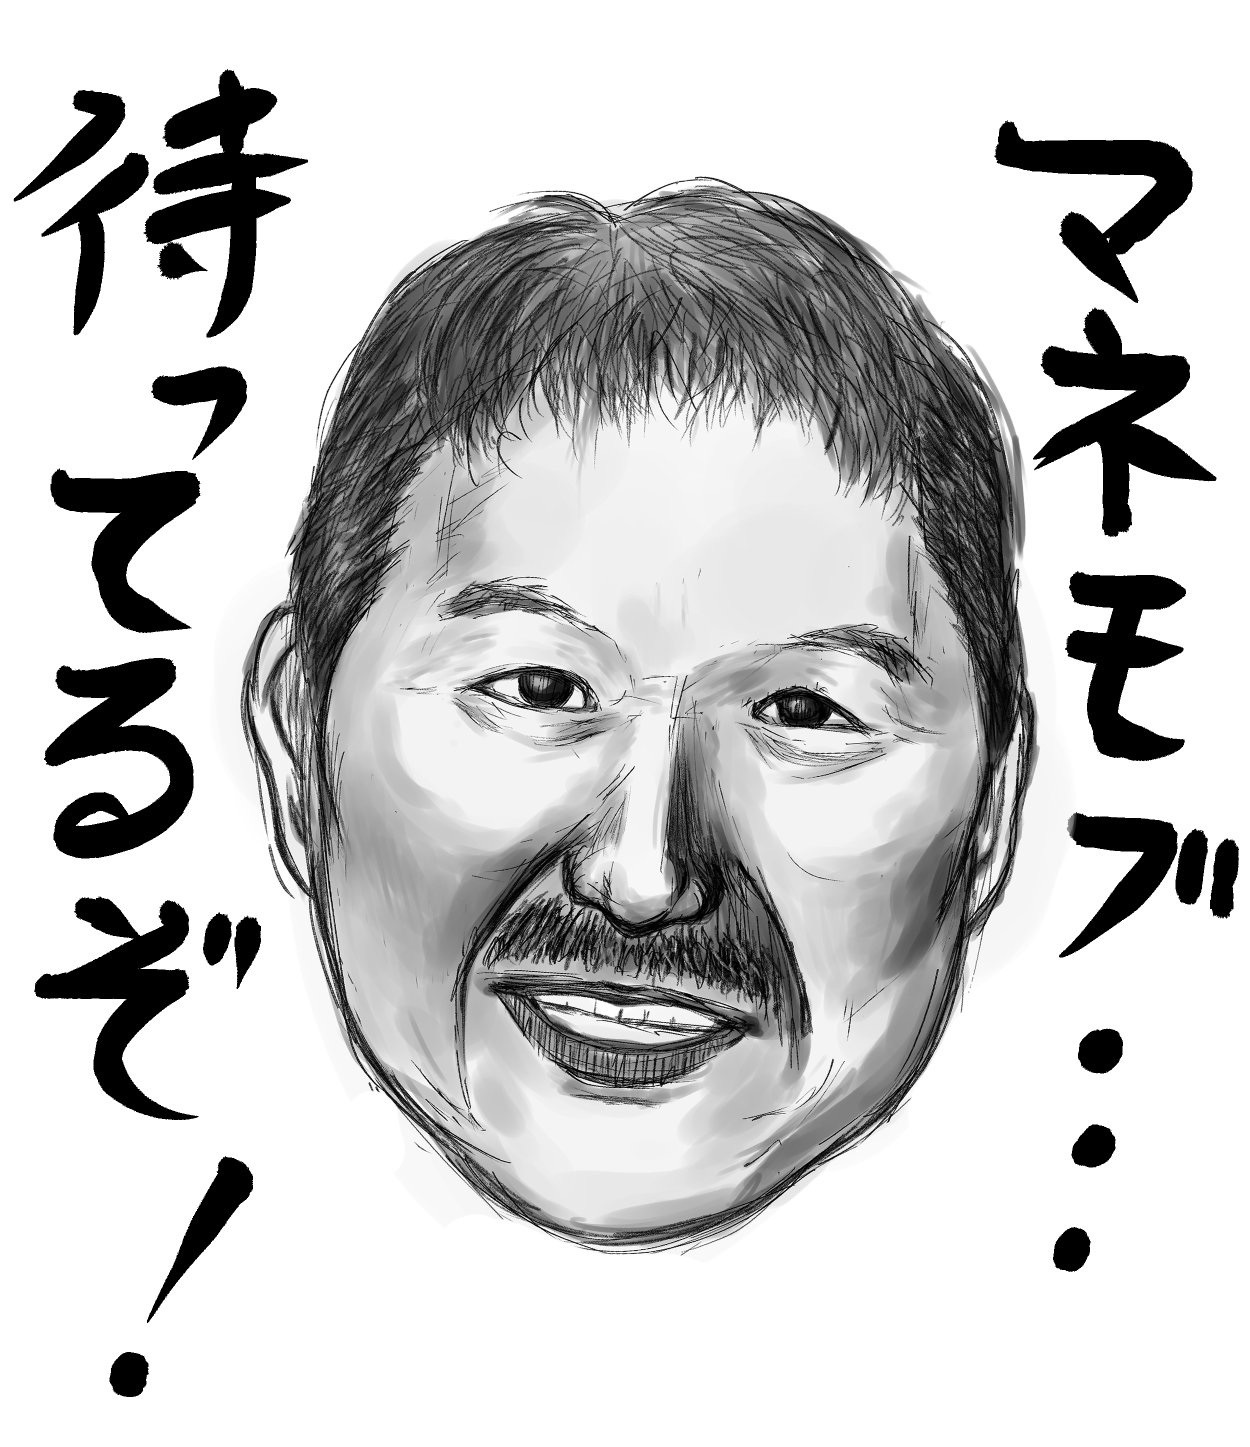 マネモブ・・・
待ってるぞ！